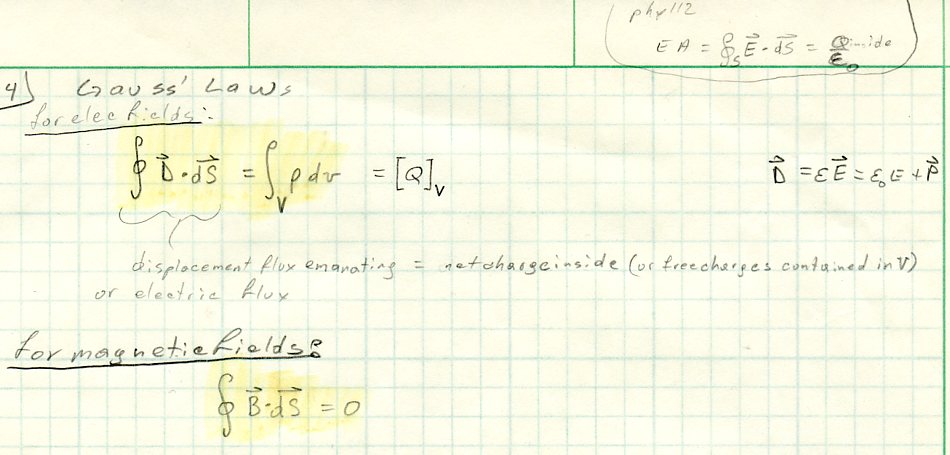 phy 112
EA = ∮ₛ E⃗·dS⃗ = Qinside/ε₀
4) Gauss' Laws
for elec fields:
∮ D⃗·dS⃗ = ∫ᵥ ρdv = [Q]ᵥ
D⃗ = εE⃗ = ε₀E + P⃗
displacement flux emanating = net charge inside (or free charges contained in V)
or electric flux
for magnetic fields:
∮ B⃗·dS⃗ = 0